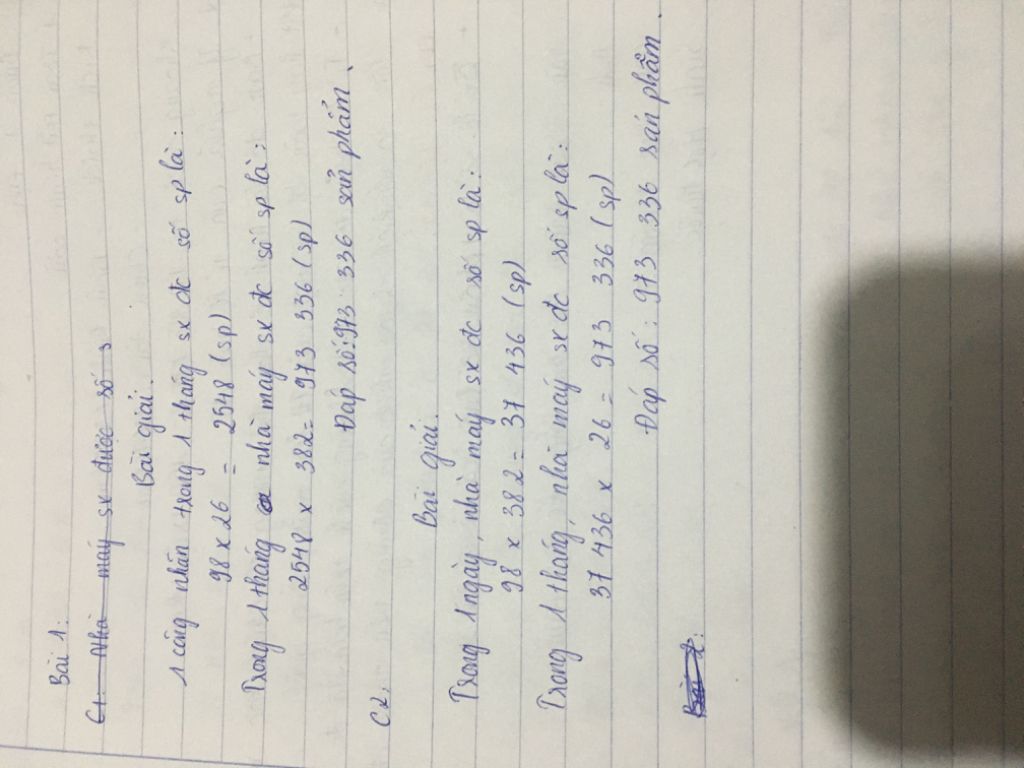 Bài 1:
C1. Nhà máy sx được số s
Bài giải.
1 công nhân trong 1 tháng sx đc số sp là:
98 x 26 = 2548 (sp)
Trong 1 tháng nhà máy sx đc số sp là:
2548 x 382 = 973 336 (sp)
Đáp số: 973 336 sản phẩm.
C2.
Bài giải.
Trong 1 ngày, nhà máy sx đc số sp là:
98 x 382 = 37 436 (sp)
Trong 1 tháng, nhà máy sx đc số sp là:
37 436 x 26 = 973 336 (sp)
Đáp số: 973 336 sản phẩm
Bài 2: